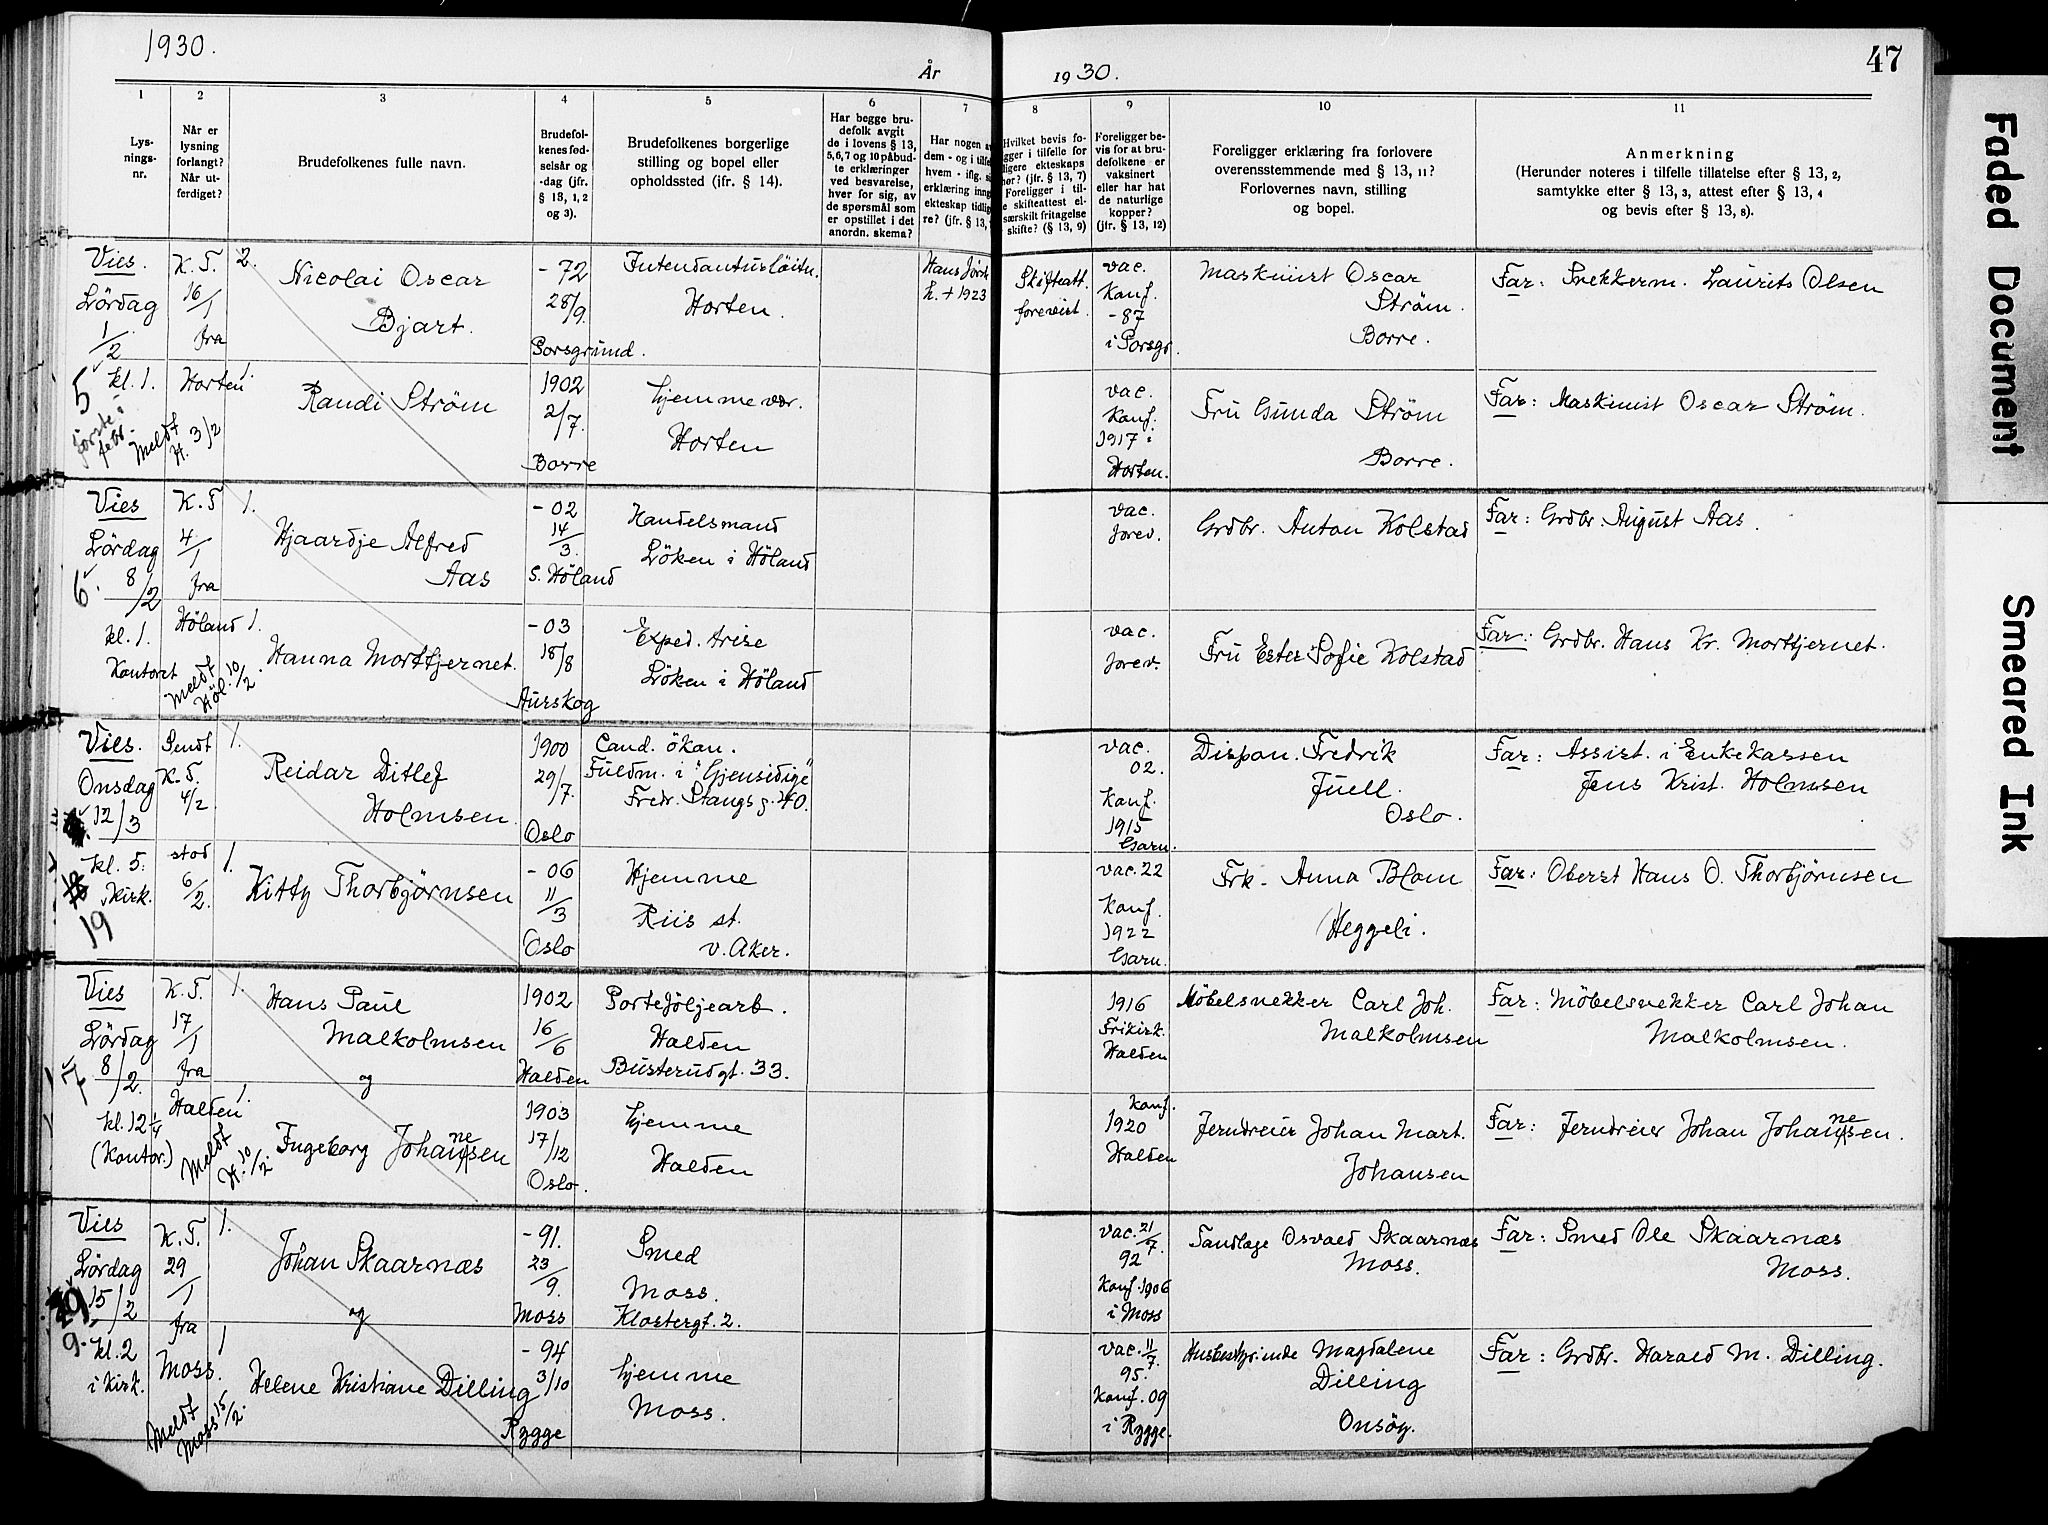 1930.
År
1930.
47
1
Lys-
nings-
nr.
2
Når er
lysning
forlangt?
Når ut-
ferdiget?
3
Brudefolkenes fulle navn.
4
Brudefol-
kenes fød-
selsår og
-dag (jfr.
§ 13, 1, 2
og 3).
5
Brudefolkenes borgerlige
stilling og bopel eller
opholdssted (ifr. § 14).
6
Har begge bru-
defolk avgit
de i lovens § 13,
5, 6, 7 og 10 påbud-
te erklæringer
ved besvarelse,
hver for sig, av
de spørsmål som
er opstillet i det
anordn. skema?
7
Har nogen a
dem - og i tilfe
hvem - iflg. si
erklæring inng
ekteskap tidlig
re? (jfr. § 13,
8
Hvilket bevis fo-
gger i tilfelle for
ligere ekteskaps
hør? (jfr. § 13, 7)
Foreligger i til-
e skifteattest el-
særskilt fritagelse
skifte? (§ 13, 9)
9
Foreligger be-
vis for at bru-
defolkene er
vaksinert
eller har hat
de naturlige
kopper?
(jfr. § 13, 12)
10
Foreligger erklæring fra forlovere
overensstemmende med § 13, 11?
Forlovernes navn, stilling
og bopel.
11
Anmerkning
(Herunder noteres i tilfelle tillatelse efter § 13, 2,
samtykke efter § 13, 3, attest efter § 13, 4
og bevis efter § 13, 8).
Vies.
Lördag
1/2
kl. 1.
5
første i
febr.
K. T.
16/1
fra
Horten
Meldt
H. 3/2
2.
Nicolai Oscar
Bjart.
- 72
28/9.
Porsgrund.
Intendantusløitn.
Horten.
Hans Jørdr
h. + 1923
Skifteatt.
forevist.
vac.
Konf.
- 87
i Porsgr.
Maskinist Oscar
Strøm.
Borre.
Far: Snekkerm. Laurits Olsen
1.
Randi Strøm
1902
2/7.
Borre
hjemmevær.
Horten
vac.
Konf.
1917 i
Horten.
Fru Gunda Strøm
Borre.
Far: Maskinist Oscar Strøm.
Vies
Lördag
8/2
6.
kl. 1.
Kontoret
K. T
4/1
fra
Höland
Meldt
Höl. 10/2.
1.
Hjaardje Alfred
Aas
- 02
14/3.
S. Höland
Handelsmand
Löken i Höland
vac.
forev.
Grdbr. Anton Kolstad
Far: Grdbr. August Aas.
1.
Hanna Mortfjernet.
- 03
18/8
Aurskog
Exped. trise
Löken i Höland
vac.
forev.
Fru Ester Sofie Kolstad
Far: Grdbr. Hans Kr. Mortfjernet.
Vies.
Onsdag
12/3
kl. 5.
i Kirk.
19
Sendt
K. T.
4/2
stod
6/2.
1.
Reidar Ditlef
Holmsen.
1900
29/7.
Oslo
Cand. ökon.
Fuldm. i "Gjensidige"
Fredr. Stangs g. 40.
vac.
02.
Konf.
1915
Garn.
Dispon. Fredrik
Juell.
Oslo.
Far: Assist. i Enkekassen
Jens Krist. Holmsen
1.
Kitty Thorbjørnsen
- 06
11/3
Oslo
Hjemme
Riis st.
v. Aker.
vac. 22
Konf.
1922
Garn.
Frk. Anna Blom
Heggeli.
Far: Oberst Hans O. Thorbjørnsen
Vies
Lördag
8/2.
7.
kl. 12 1/4
(Kontor.)
K. T.
17/1
fra
Halden
Meldt
H. 10/2.
1.
Hans Paul
Malkolmsen
og
1902
16/6
Halden
Portefölje­arb.
Halden
Busterudgt. 33.
1916
Frikirk.
Halden
Möbelsnekker Carl Joh.
Malkolmsen
Far: Möbelsnekker Carl Johan
Malkolmsen.
1.
Ingeborg Johannesen
1903
17/12
Oslo.
hjemme
Halden
Konf.
1920
Halden
Jerndreier Johan Mart.
Johansen
Far: Jerndreier Johan Johannesen.
Vies
Lørdag
15/2
9.
kl. 2
i Kirk.
K. T.
29/1
fra
Moss.
Meldt
Moss 15/2.
1.
Johan Skaarnæs
og
- 91.
23/9.
Moss
Smed
Moss.
Klostergt. 2.
vac. 21/7.
92
Konf. 1906
i Moss
Tandlæge Osvald Skaarnæs
Moss.
Far: Smed Ole Skaarnæs
Moss.
1
Helene Kristiane Dilling
- 94
3/10
Rygge
hjemme
Moss.
vac. 11/7.
95.
Konf. 09
i Rygge.
Husbestyrinde Magdalene
Dilling
Onsöy.
Far: Grdbr. Harald M. Dilling.
Faded Document
Smeared Ink